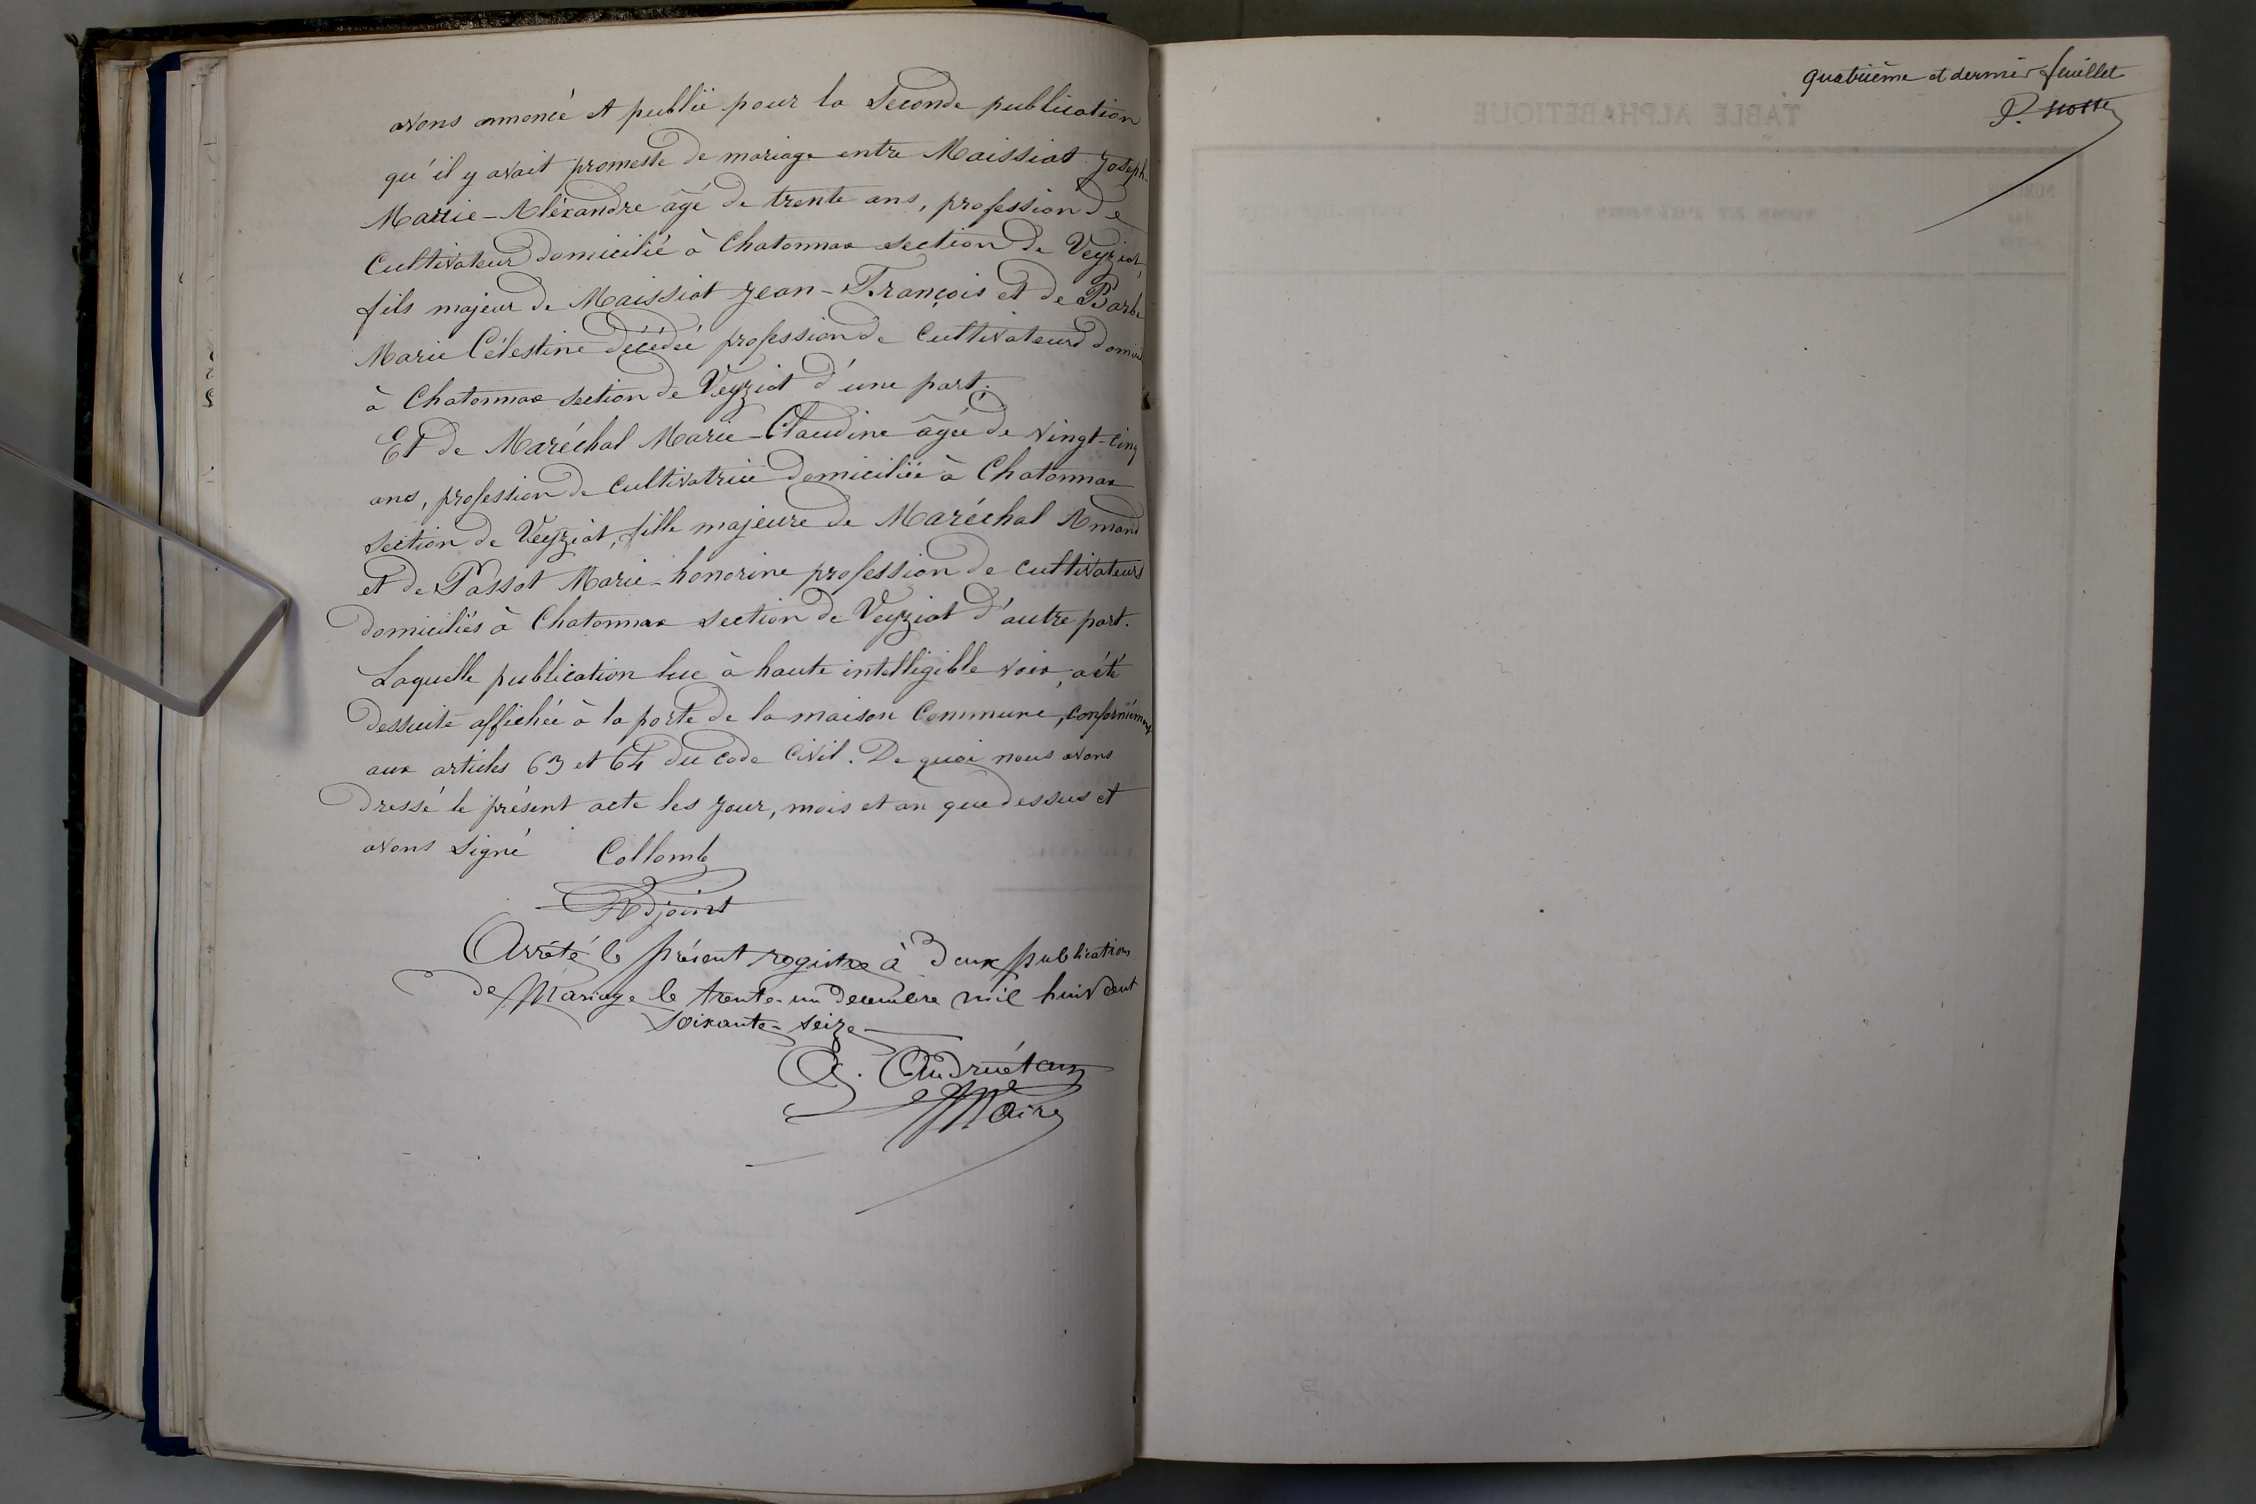 avons annoncé et publié pour la seconde publication
qu'il y avait promesse de mariage entre Maissiat Joseph-
Marie-Aléxandre âgé de trente ans, profession de
Cultivateur domicilié à Chatonnax section de Veyziat,
fils majeur de Maissiat Jean-François et de Barbe
Marie Célestine décédée profession de Cultivateurs domi
à Chatonnax section de Veyziat d'une part.
Et de Maréchal Marie-Claudine âgée de vingt-cinq
ans, profession de cultivatrice domiciliée à Chatonnax
section de Veyziat, fille majeure de Maréchal Amand
et de Passot Marie-honorine profession de cultivateurs
domiciliés à Chatonnax section de Veyziat d'autre part.
Laquelle publication lue à haute intelligible voix, a été
dessuite affichée à la porte de la maison Commune, conformément
aux articles 63 et 64 du code Civil. De quoi nous avons
dressé le présent acte les jour, mois et an que dessus et
avons signé Collomb
Adjoint
Arrêté le présent registre à deux publication
de Mariage le trente-un décembre mil huit cent
soixante-seize
Maire
quatrième et dernier feuillet
TABLE ALPHABÉTIQUE
NOMS ET PRÉNOMS